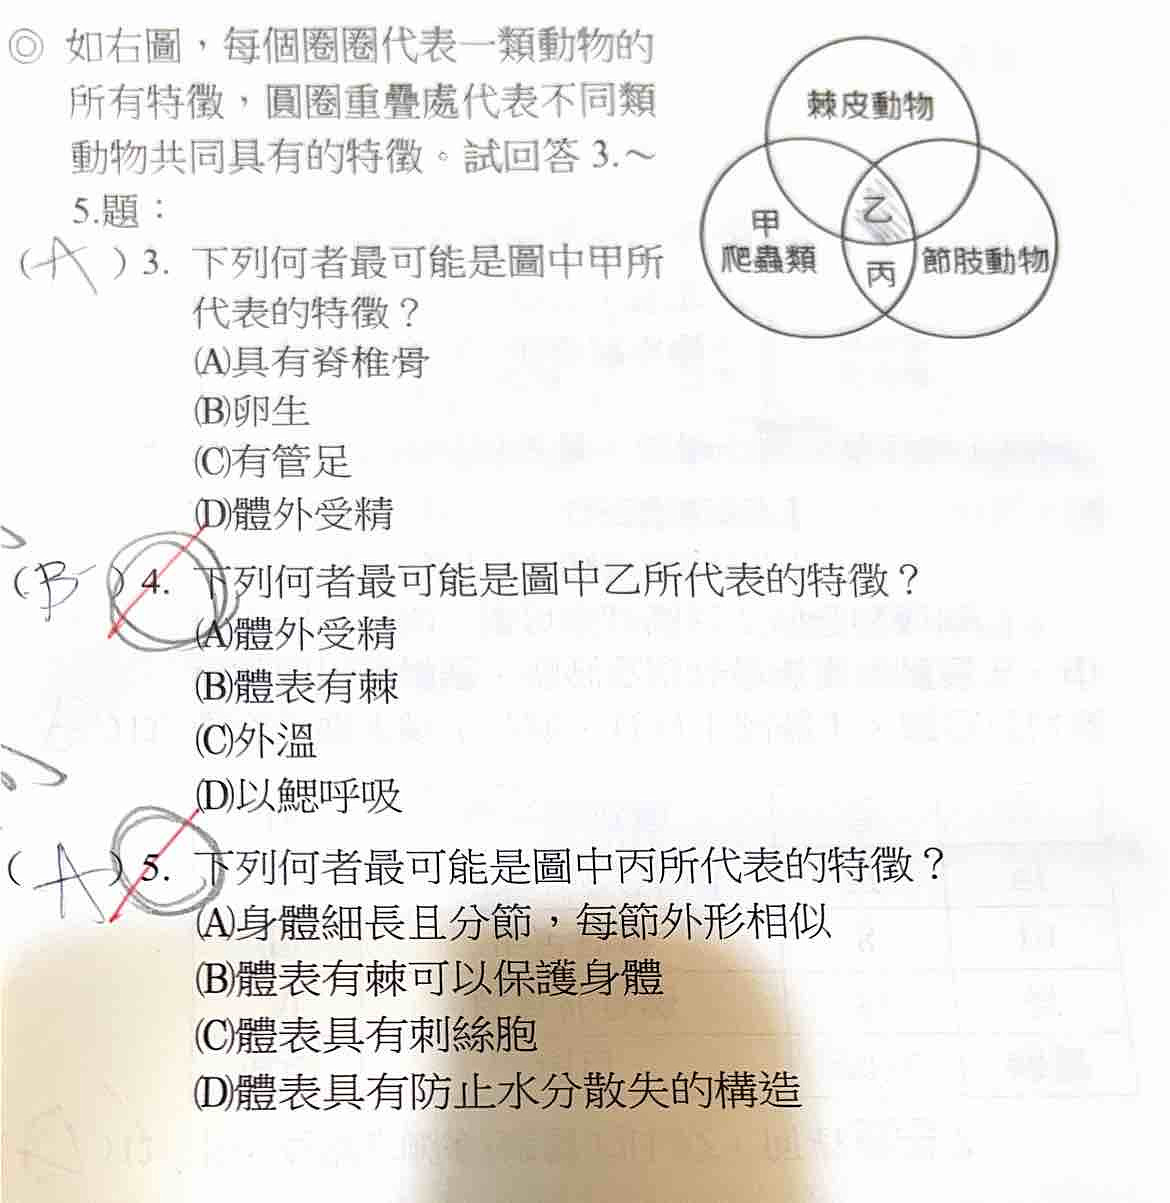 ◎ 如右圖，每個圈圈代表一類動物的
所有特徵，圓圈重疊處代表不同類
動物共同具有的特徵。試回答 3.～
5.題：
棘皮動物
甲
爬蟲類
乙
丙
節肢動物
(A) 3. 下列何者最可能是圖中甲所
代表的特徵？
(A)具有脊椎骨
(B)卵生
(C)有管足
(D)體外受精
(B) 4. 下列何者最可能是圖中乙所代表的特徵？
(A)體外受精
(B)體表有棘
(C)外溫
(D)以鰓呼吸
(A) 5. 下列何者最可能是圖中丙所代表的特徵？
(A)身體細長且分節，每節外形相似
(B)體表有棘可以保護身體
(C)體表具有刺絲胞
(D)體表具有防止水分散失的構造